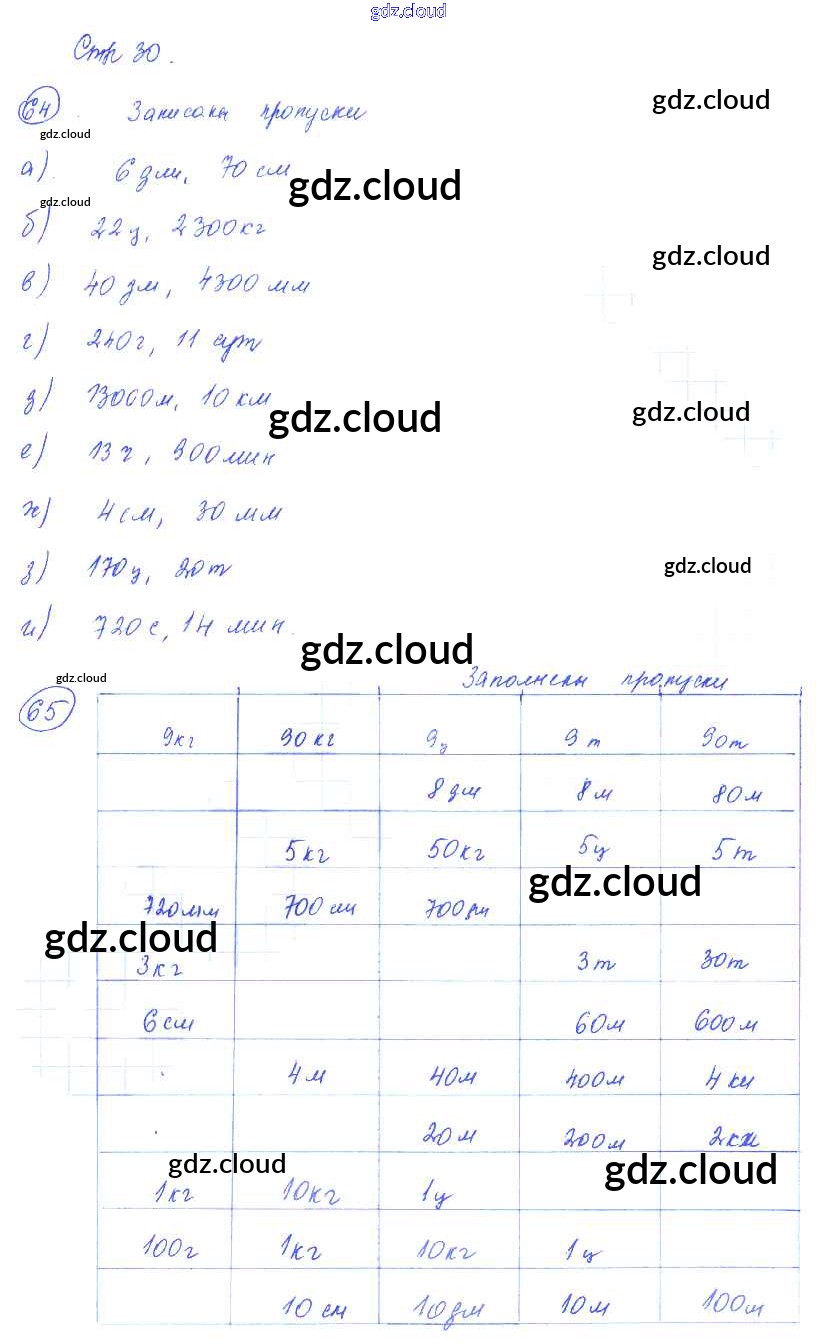 gdz.cloud
Стр 30.
64. Записаны пропуски
gdz.cloud
gdz.cloud
а). 6 дм, 70 см
gdz.cloud
gdz.cloud
б) 22ц, 2300кг
gdz.cloud
в) 40 дм, 4300 мм
г) 240г, 11 сут
д) 13000м, 10 км
gdz.cloud
gdz.cloud
е) 13 г, 900мин
ж) 4 см, 30 мм
з) 170ц, 20т
gdz.cloud
и) 720 с, 14 мин.
gdz.cloud
gdz.cloud
65 Заполнены пропуски
9кг 90 кг 9ц 9 т 90т
8 дм 8м 80м
5кг 50кг 5ц 5т
gdz.cloud
720мм 700 см 700дм
gdz.cloud
3кг 3т 30т
6 см 60м 600м
4м 40м 400м 4 км
20м 200м 2км
gdz.cloud
gdz.cloud
1кг 10кг 1ц
100г 1кг 10кг 1ц
10 см 10дм 10м 100м